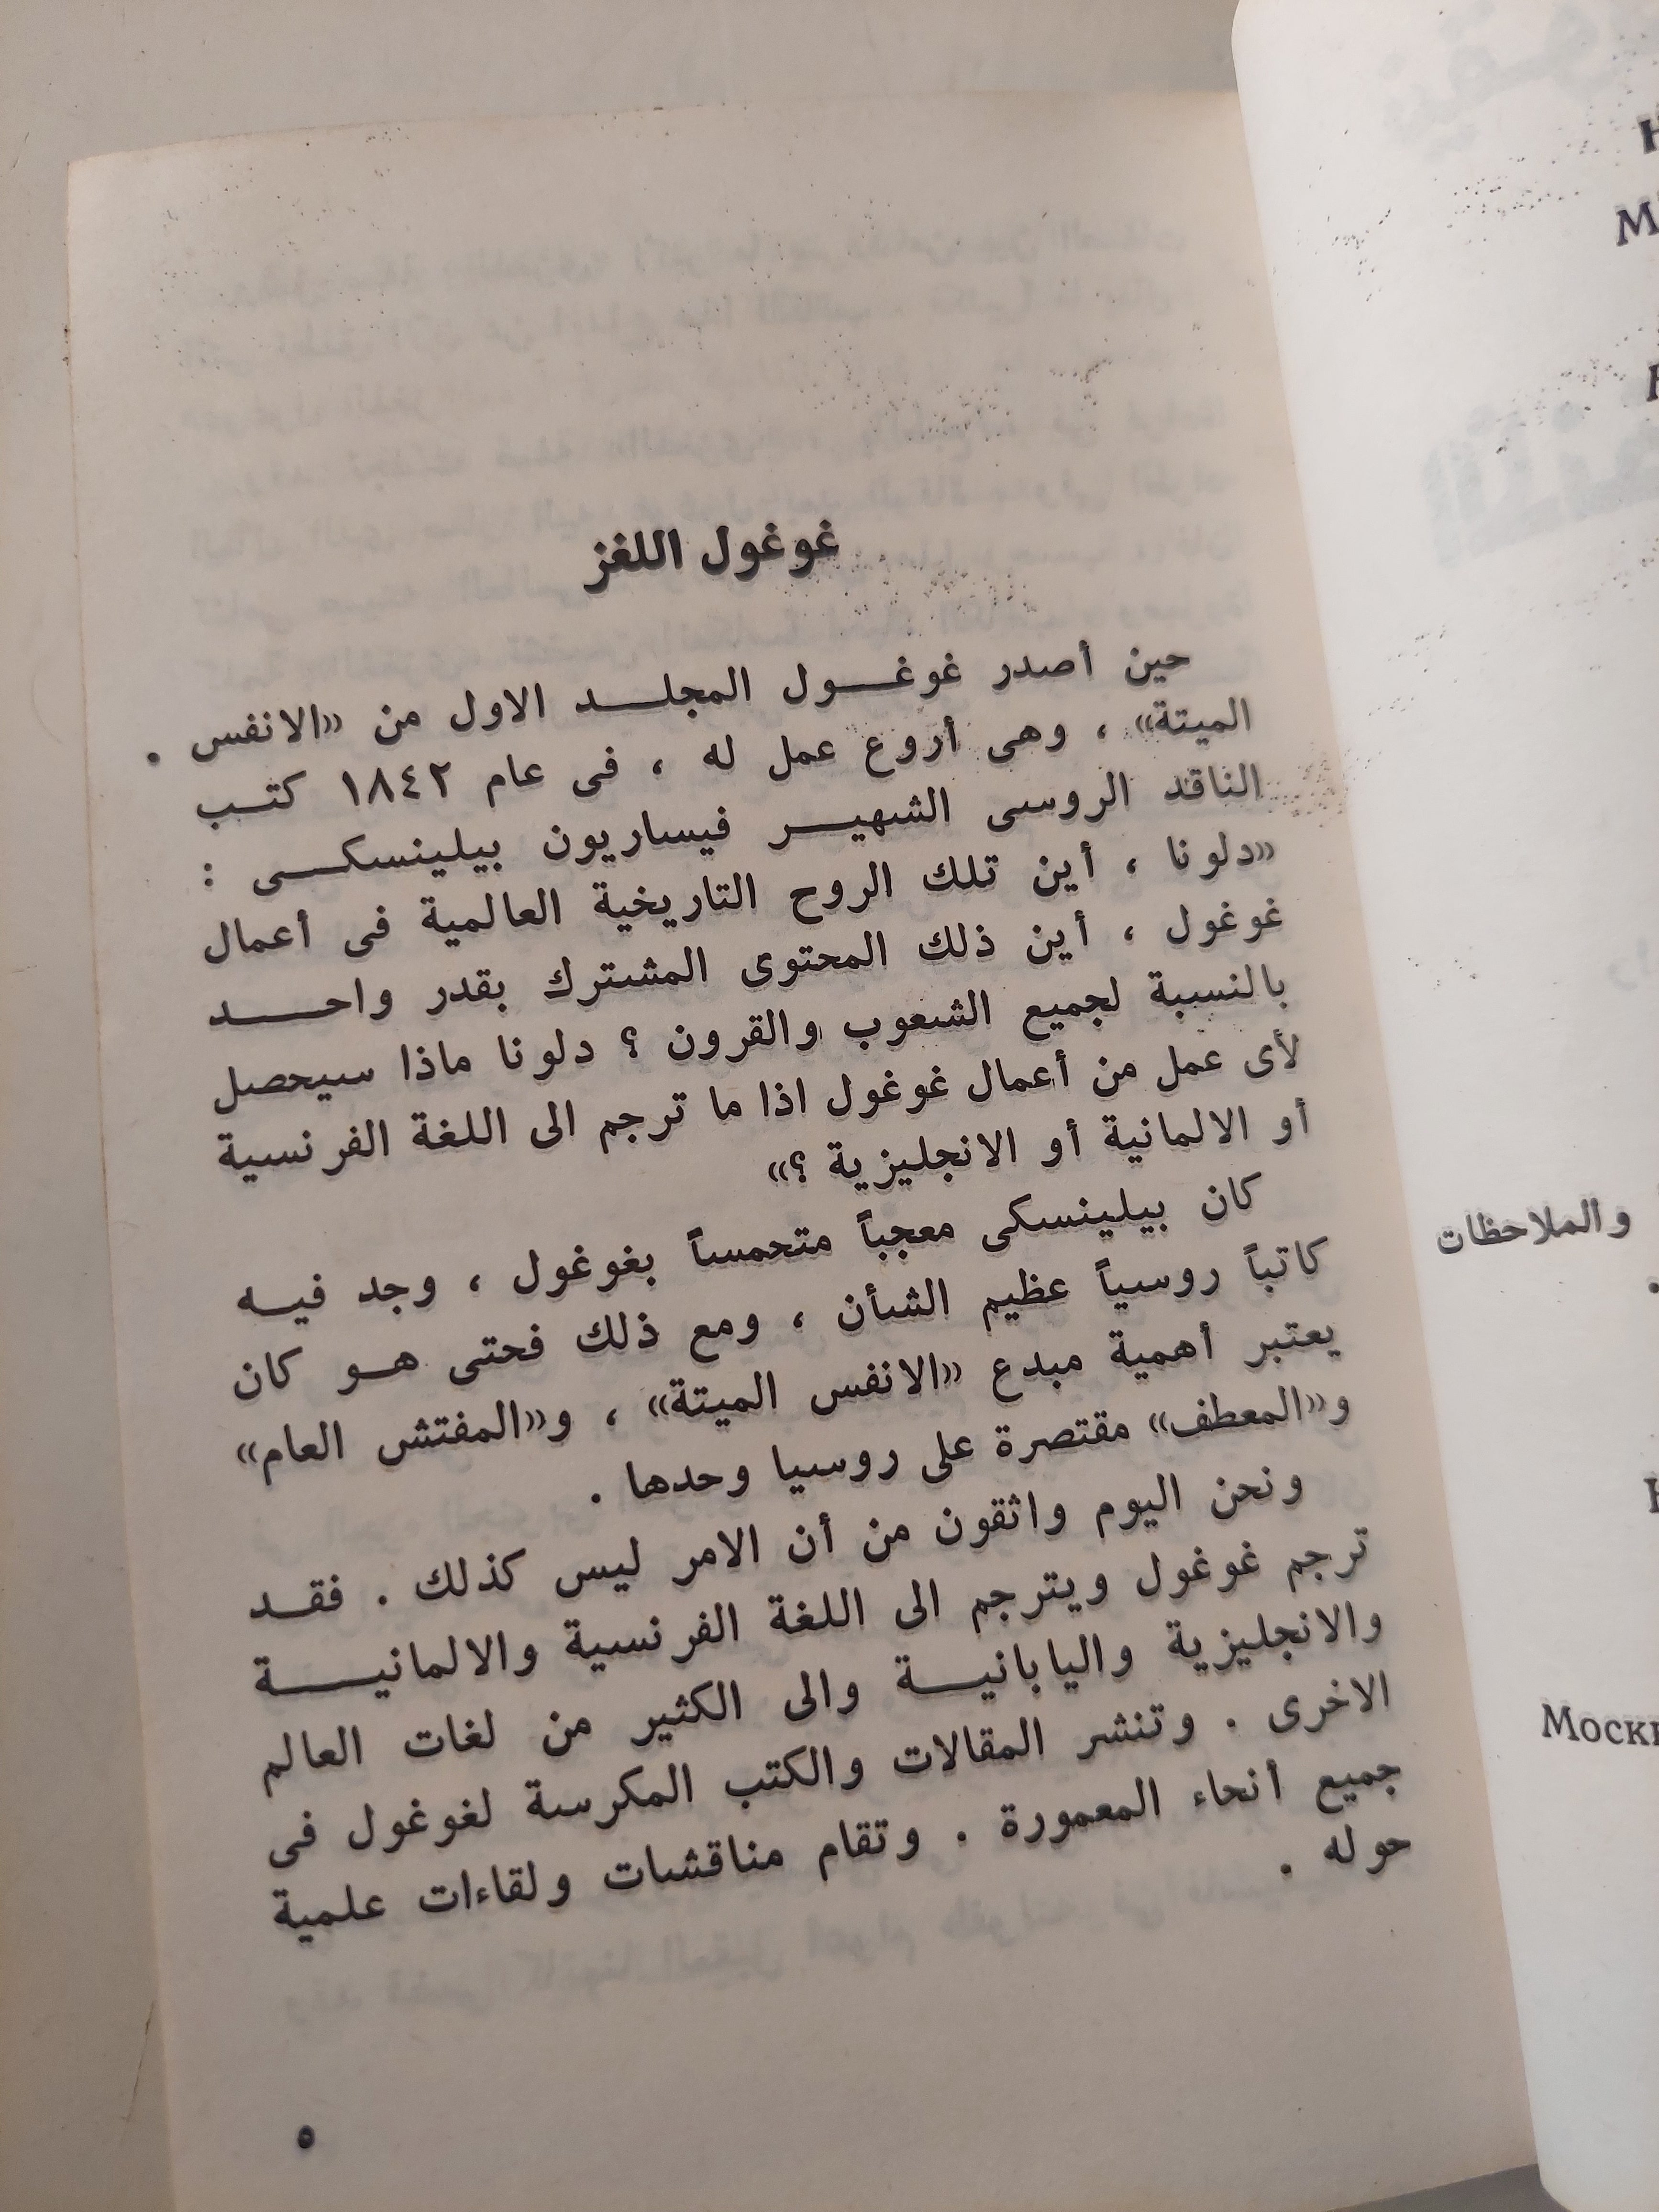 غوغول اللغز
حين أصدر غوغـــول المجلـــد الاول من «الانفس
الميتة» ، وهى أروع عمل له ، فى عام ١٨٤٢ كتـب
الناقد الروسى الشهيـــر فيساريون بيلينسكـــى :
«دلونا ، أين تلك الروح التاريخية العالمية فى أعمال
غوغول ، أين ذلك المحتوى المشترك بقدر واحـــد
بالنسبة لجميع الشعوب والقرون ؟ دلونا ماذا سيحصل
لأى عمل من أعمال غوغول اذا ما ترجم الى اللغة الفرنسية
أو الالمانية أو الانجليزية ؟»
كان بيلينسكى معجباً متحمساً بغوغول ، وجد فيـه
كاتباً روسياً عظيم الشأن ، ومع ذلك فحتى هـو كان
يعتبر أهمية مبدع «الانفس الميتة» ، و«المفتش العام»
و«المعطف» مقتصرة على روسيا وحدها .
ونحن اليوم واثقون من أن الامر ليس كذلك . فقـد
ترجم غوغول ويترجم الى اللغة الفرنسية والالمانيـــة
والانجليزية واليابانيـــة والى الكثير من لغات العالم
الاخرى . وتنشر المقالات والكتب المكرسة لغوغول فى
جميع أنحاء المعمورة . وتقام مناقشات ولقاءات علمية
حوله .
٥
М
والملاحظات
Моск